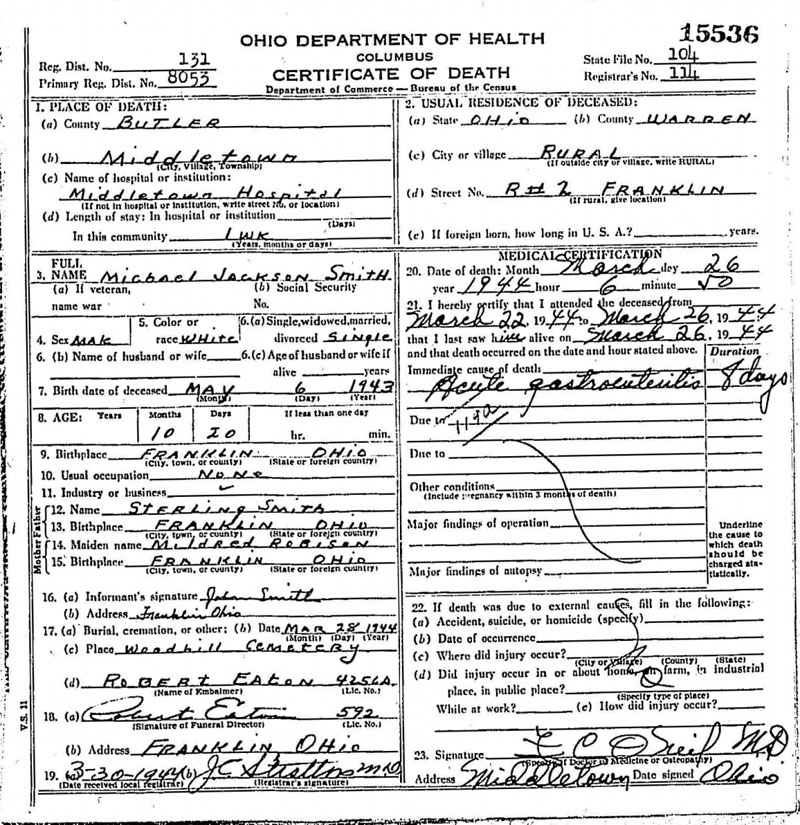 15536
OHIO DEPARTMENT OF HEALTH
COLUMBUS
CERTIFICATE OF DEATH
Department of Commerce — Bureau of the Census
Reg. Dist. No. 131
Primary Reg. Dist. No. 8053
State File No. 104
Registrar's No. 114
1. PLACE OF DEATH:
(a) County BUTLER
(b) Middletown
(City, Village, Township)
(c) Name of hospital or institution:
Middletown Hospital
(If not in hospital or institution, write street No. or location)
(d) Length of stay: In hospital or institution
(Days)
In this community 1 wk
(Years, months or days)
2. USUAL RESIDENCE OF DECEASED:
(a) State OHIO (b) County WARREN
(c) City or village RURAL
(If outside city or village, write RURAL)
(d) Street No. R#2 FRANKLIN
(If rural, give location)
(e) If foreign born, how long in U. S. A.? years.
FULL
3. NAME Michael Jackson Smith
(a) If veteran, (b) Social Security
name war No.
4. Sex MALE 5. Color or race WHITE 6. (a) Single, widowed, married, divorced Single
6. (b) Name of husband or wife 6. (c) Age of husband or wife if
alive years
7. Birth date of deceased MAY 6 1943
(Month) (Day) (Year)
8. AGE: Years Months Days If less than one day
10 20 hr. min.
9. Birthplace FRANKLIN OHIO
(City, town, or county) (State or foreign country)
10. Usual occupation NONE
11. Industry or business
Father
12. Name STERLING SMITH
13. Birthplace FRANKLIN OHIO
(City, town, or county) (State or foreign country)
Mother
14. Maiden name MILDRED ROBISON
15. Birthplace FRANKLIN OHIO
(City, town, or county) (State or foreign country)
16. (a) Informant's signature John Smith
(b) Address Franklin Ohio
17. (a) Burial, cremation, or other: (b) Date MAR 28 1944
(Month) (Day) (Year)
(c) Place Woodhill Cemetery
(d) ROBERT EATON 4256A
(Name of Embalmer) (Lic. No.)
18. (a) Robert Eaton 592
(Signature of Funeral Director) (Lic. No.)
(b) Address FRANKLIN, OHIO
19. (a) 3-30-1944 (b) J.C. Stratton M.D.
(Date received local registrar) (Registrar's signature)
V.S. 11
MEDICAL CERTIFICATION
20. Date of death: Month March day 26
year 1944 hour 6 minute 50
21. I hereby certify that I attended the deceased from
March 22, 1944 to March 26, 1944
that I last saw him alive on March 26, 1944
and that death occurred on the date and hour stated above.
Duration
Immediate cause of death
Acute gastroenteritis 8 days
Due to 119a
Due to
Other conditions
(Include pregnancy within 3 months of death)
Major findings of operation
Major findings of autopsy
Underline
the cause to
which death
should be
charged sta-
tistically.
22. If death was due to external causes, fill in the following:
(a) Accident, suicide, or homicide (specify)
(b) Date of occurrence
(c) Where did injury occur?
(City or Village) (County) (State)
(d) Did injury occur in or about home, on farm, in industrial
place, in public place?
(Specify type of place)
While at work? (e) How did injury occur?
23. Signature M.D.
(Specify if Doctor of Medicine or Osteopathy)
Address Middletown Date signed Ohio